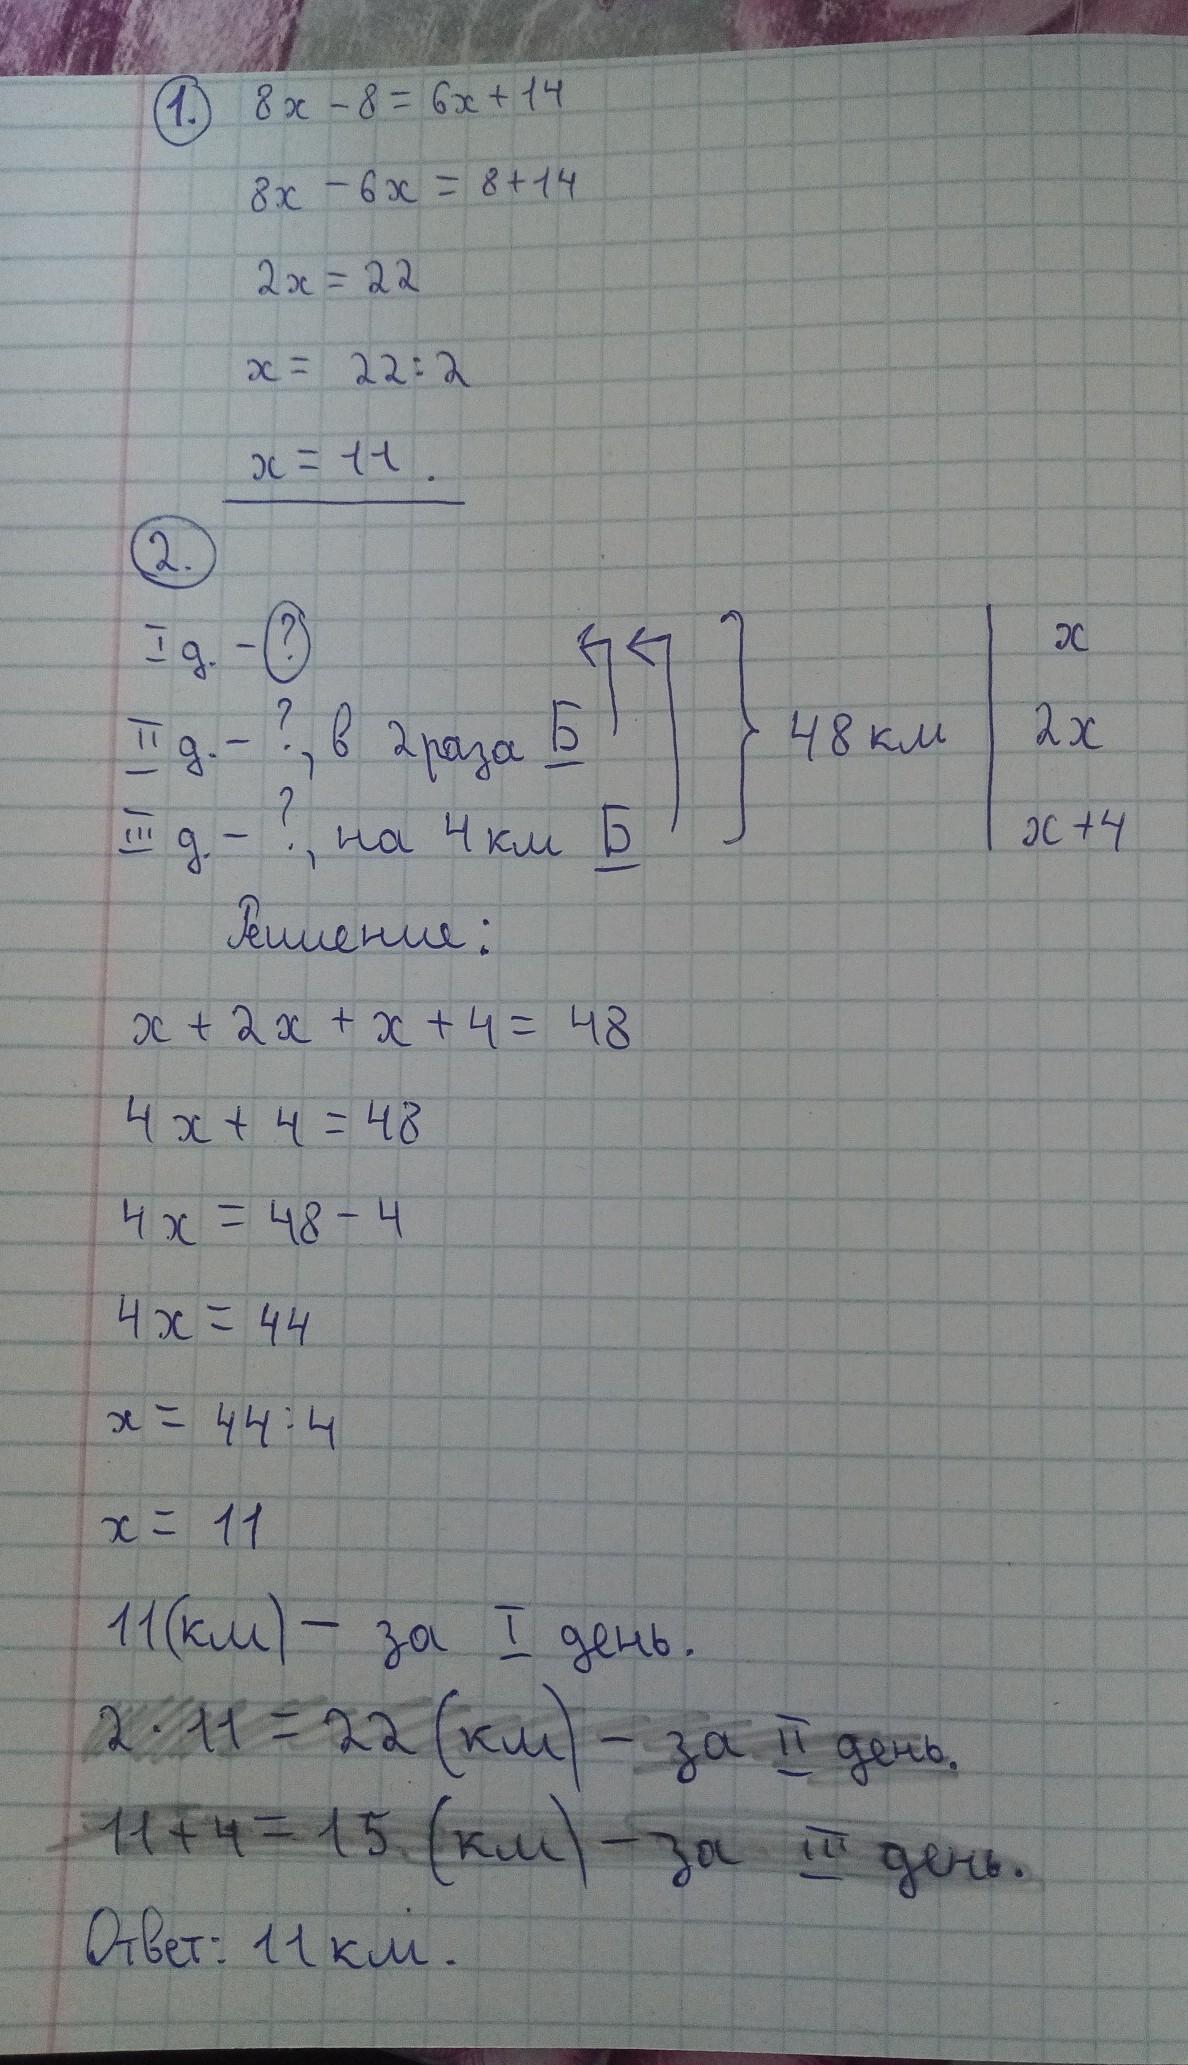 1. 8x - 8 = 6x + 14
8x - 6x = 8 + 14
2x = 22
x = 22 : 2
x = 11.
2.
I д. - ? x
II д. - ?, в 2 раза Б } 48 км 2x
III д. - ?, на 4 км Б x + 4
Решение:
x + 2x + x + 4 = 48
4x + 4 = 48
4x = 48 - 4
4x = 44
x = 44 : 4
x = 11
11 (км) - за I день.
2 · 11 = 22 (км) - за II день.
11 + 4 = 15 (км) - за III день.
Ответ: 11 км.